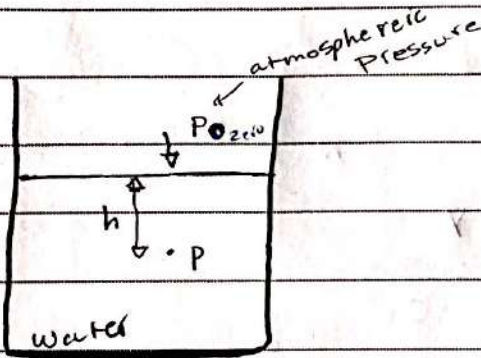 atmosphereic
Pressure
P0 zero
h
P
Water